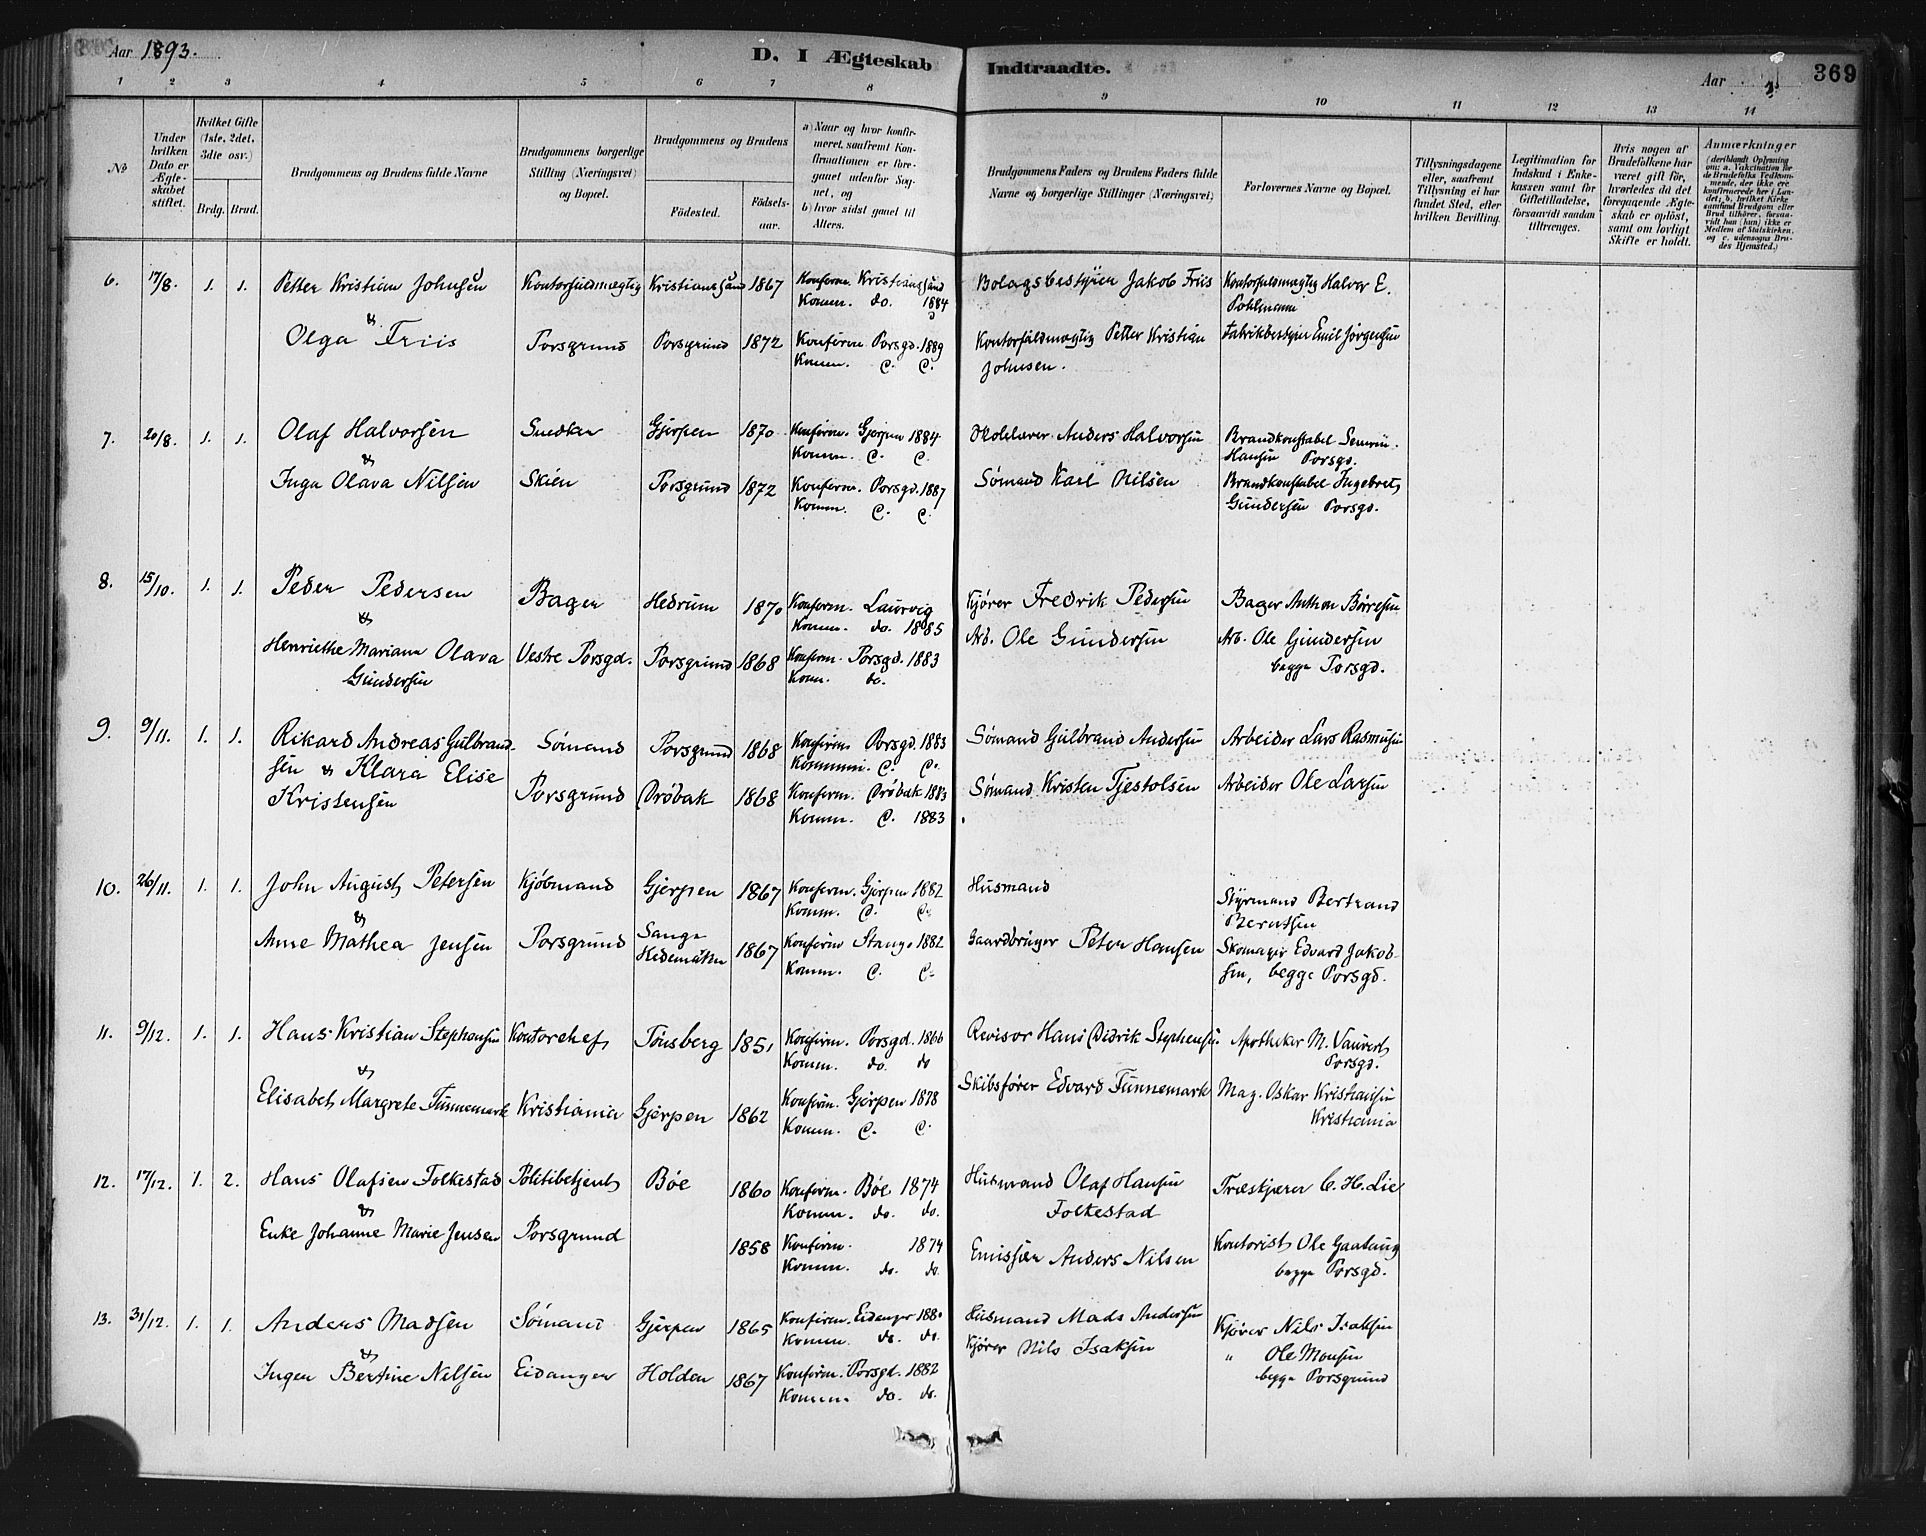 Aar 1893.
D. I Ægteskab Indtraadte.
Aar
369
1 2 3 4 5 6 7 8 9 10 11 12 13 14
No
Under hvilken Dato er Ægteskabet stiftet.
Hvilket Gifte (1ste, 2det, 3die osv.)
Brdg. Brud.
Brudgommens og Brudens fulde Navne
Brudgommens borgerlige Stilling (Næringsvei) og Bopæl.
Brudgommens og Brudens
Födested.
Födsels-aar.
a) Naar og hvor konfirmeret, saafremt Konfirmationen er foregaaet udenfor Sognet, og
b) hvor sidst gaaet til Alters.
Brudgommens Faders og Brudens Faders fulde Navne og borgerlige Stillinger (Næringsvei)
Forlovernes Navne og Bopæl.
Tillysningsdagene eller, saafremt Tillysning ei har fundet Sted, efter hvilken Bevilling.
Legitimation for Indskud i Enkekassen samt for Giftetilladelse, forsaavidt saadan tiltrænges.
Hvis nogen af Brudefolkene har været gift för, hvorledes da det foregaaende Ægteskab er oplöst, samt om lovligt Skifte er holdt.
Anmærkninger
6. 17/8. 1. 1. Petter Kristian Johnsen Kontorfuldmægtig Kristianssand 1867 Konfirm. Kristianssand
Komm. do. 1884
Bolagsbestyrer Jakob Friis Kontorfuldmægtig Halvor E.
Pohlmann
& Olga Friis Porsgrund Porsgrund 1872 Konfirm. Porsgd. 1889
Komm. C. C.
Kontorfuldmægtig Petter Kristian Fabrikbestyrer Emil Jørgensen
Johnsen.
7. 20/8. 1. 1. Olaf Halvorsen Snedker Gjerpen 1870 Konfirm. Gjerpen 1884
Komm. C. C.
Skolelærer Anders Halvorsen Brandkonstabel Severin
Hansen Porsgd.
& Inga Olava Nilsen Skien Porsgrund 1872 Konfirm. Porsgd. 1887
Komm. C. C.
Sømand Karl Nilsen Brandkonstabel Ingebret
Gundersen Porsgd.
8. 15/10. 1. 1. Peder Pedersen Bager Hedrum 1870 Konfirm. Laurvig
Komm. do. 1885
Kjører Fredrik Pedersen Bager Anthon Børresen
& Henriette Mariane Olava Vestre Porsgd. Porsgrund 1868 Konfirm. Porsgd. 1883
Gundersen Komm. do.
Arb. Ole Gundersen Arb. Ole Gundersen
begge Porsgd.
9. 9/11. 1. 1. Rikard Andreas Gulbrand- Sømand Porsgrund 1868 Konfirm Porsgd. 1883
Kommun. C. C.
Sømand Gulbrand Andersen Arbeider Lars Rasmusen
sen & Klara Elise
Kristensen Porsgrund Drøbak 1868 Konfirm. Drøbak 1883
Komm. C. 1883
Sømand Kristen Tjestolsen Arbeider Ole Larsen
10. 26/11. 1. 1. John August Petersen Kjøbmand Gjerpen 1867 Konfirm. Gjerpen 1882
Komm. C. C.
Husmand Styrmand Bertrand
Berntsen
& Anne Mathea Jensen Porsgrund Sange
Hedemarken 1867 Konfirm Stange 1882
Komm. C. C.
Gaardbruger Peter Hansen Skomager Edvard Jakob-
sen, begge Porsgd.
11. 9/12. 1. 1. Hans Kristian Stephansen Kontorchef Tønsberg 1851 Konfirm. Porsgd. 1866
Komm. do. do
Revisor Hans Didrik Stephensen Apotheker M. Vauvert
Porsgd.
& Elisabet Margrete Funnemark Kristiania Gjerpen 1862 Konfirm. Gjerpen 1878
Komm. C. C.
Skibsfører Edvard Funnemark Mag. Oskar Kristiansen
Kristiania
12. 17/12. 1. 2. Hans Olafsen Folkestad Politibetjent Bøe 1860 Konfirm. Bøe 1874
Komm. do. do.
Husmand Olaf Hansen Træskjærer C. H. Lie
Folkestad
& Enke Johanne Marie Jensen Porsgrund 1858 Konfirm. 1874
Komm. do. do.
Emissær Anders Nilsen Kontorist Ole Gaatung
begge Porsgd.
13. 31/12. 1. 1. Anders Madsen Sømand Gjerpen 1865 Konfirm. Eidanger 1880
Komm. do. do.
Husmand Mads Andersen Kjører Nils Isaksen
& Ingen Bertine Nilsen Eidanger Holden 1867 Konfirm. Porsgd. 1882
Komm. do. do.
Kjører Nils Isaksen " Ole Monsen
begge Porsgrund